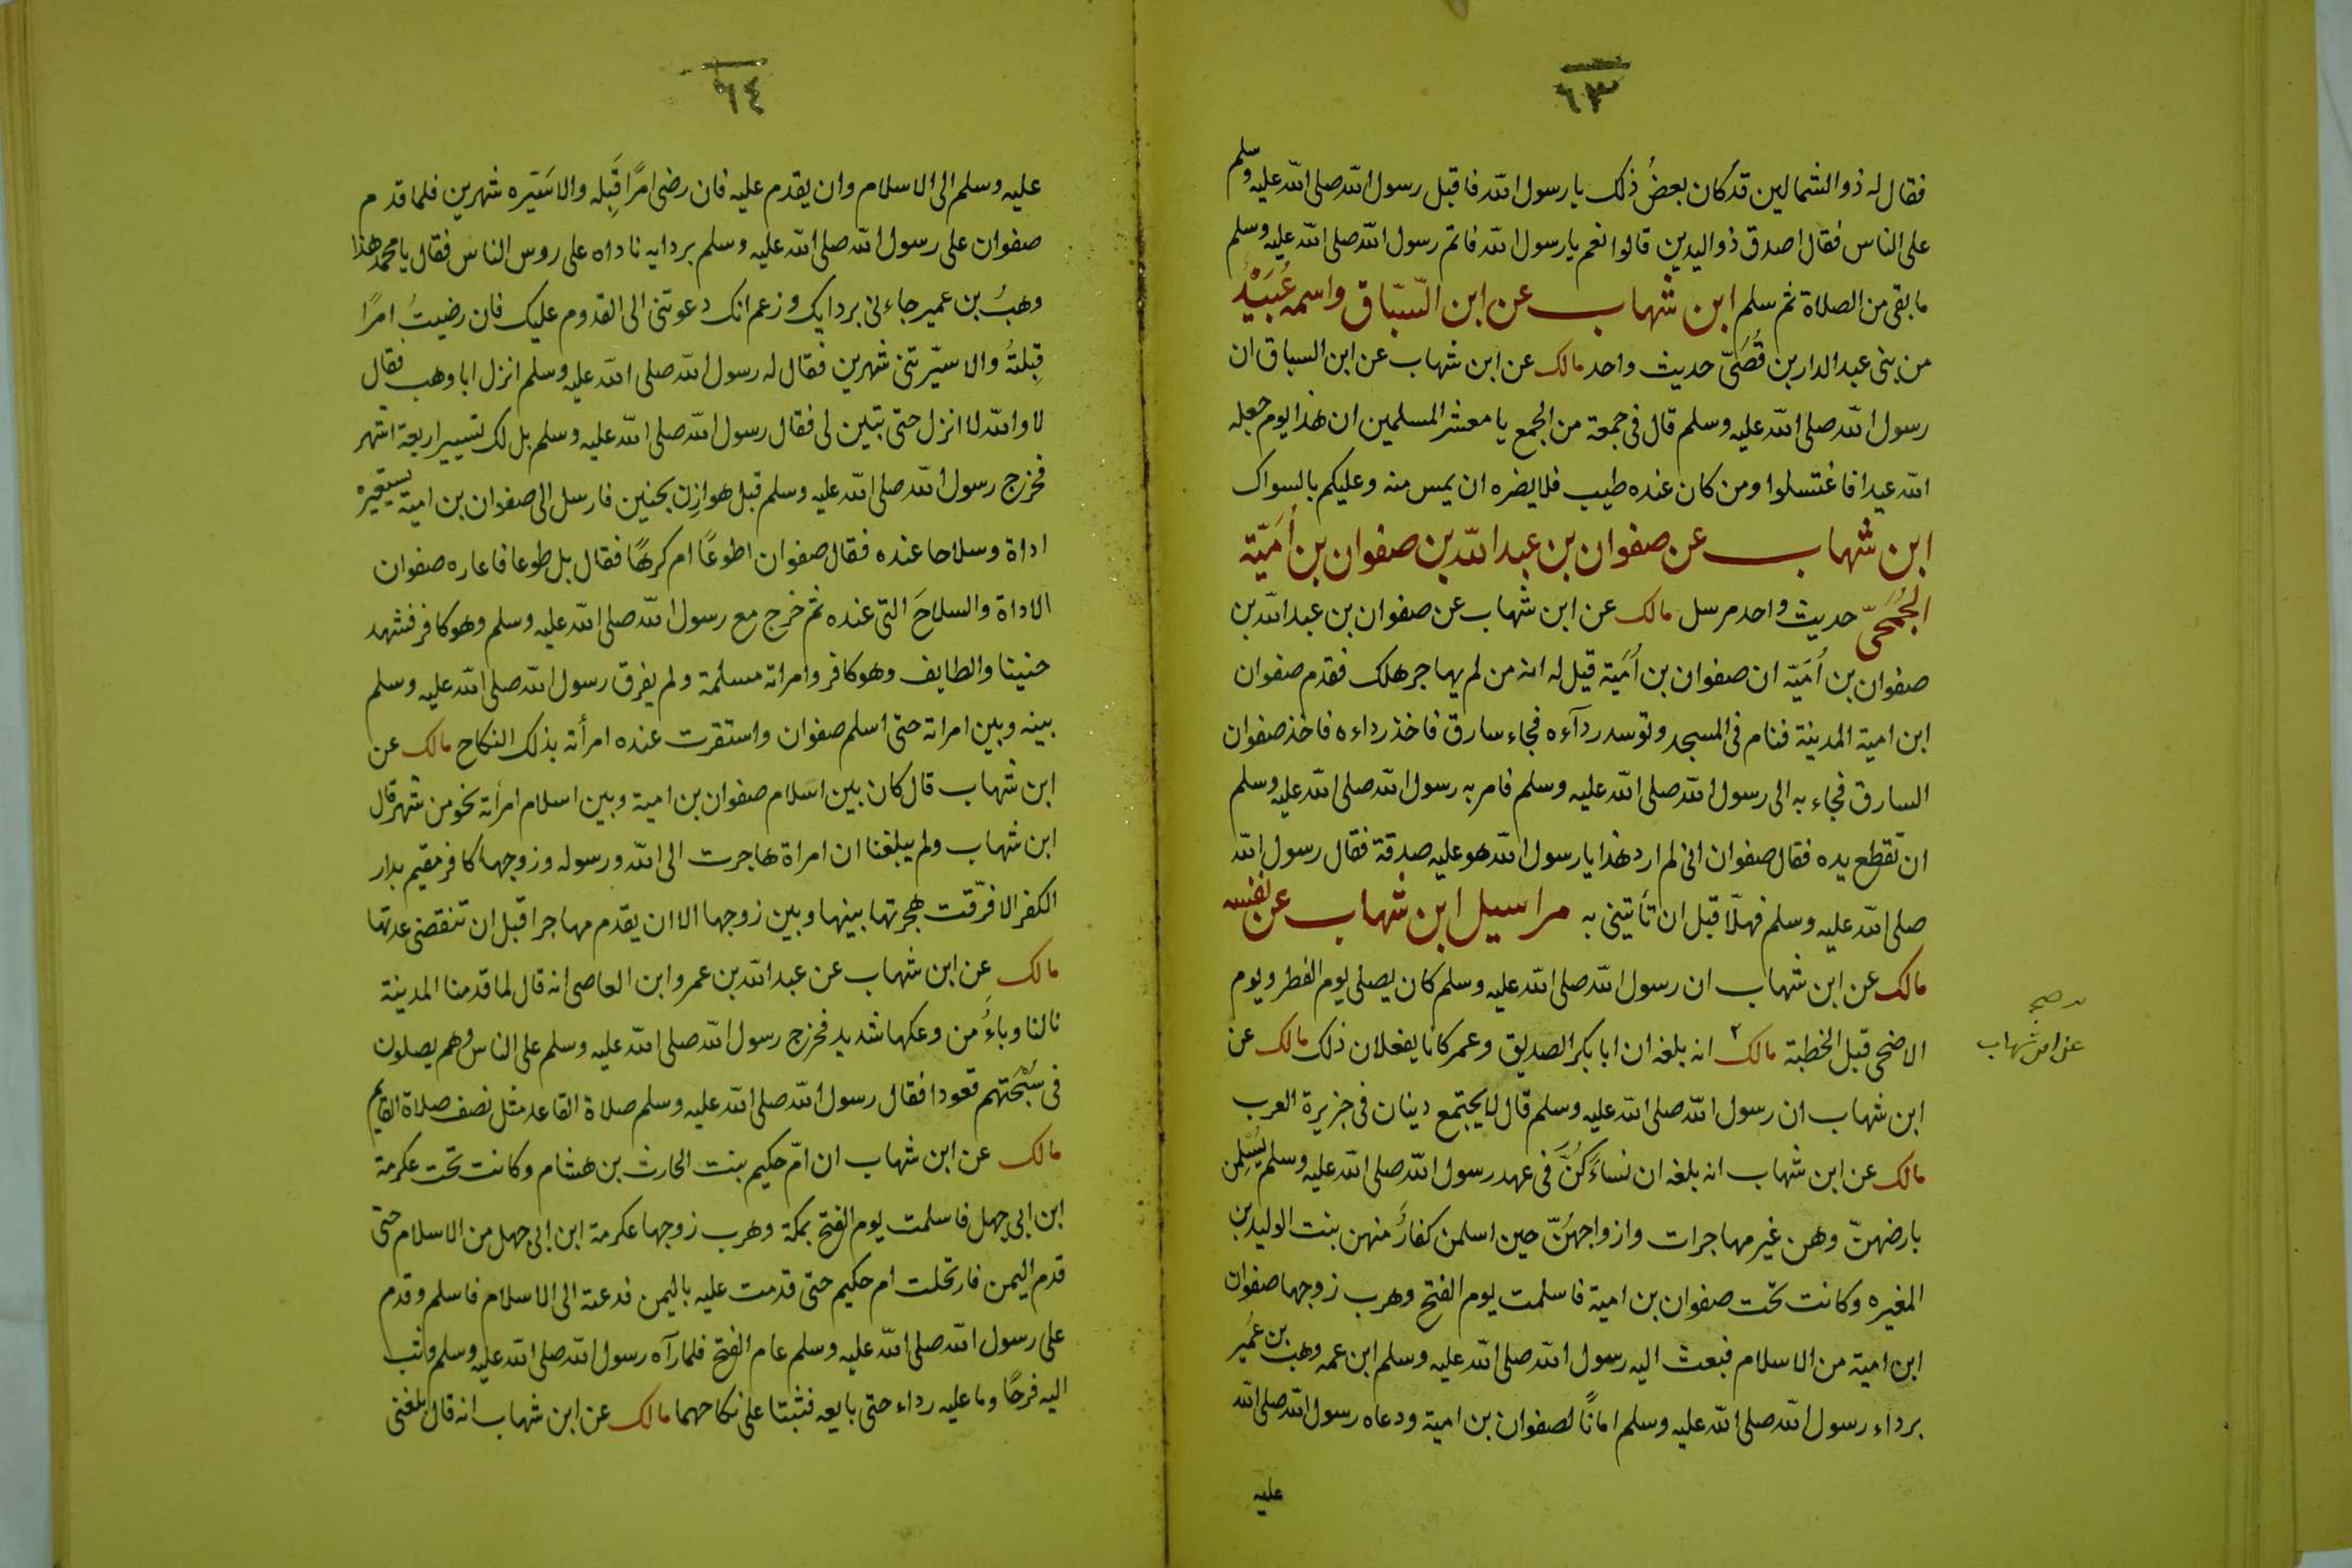 ٦٣
فقال له ذو الشمالين قد كان بعضُ ذلك يا رسول الله فاقبل رسول الله صلى الله عليه وسلم
على الناس فقال اصدق ذو اليدين قالوا نعم يا رسول الله فاتم رسول الله صلى الله عليه وسلم
ما بقى من الصلاة ثم سلم ابن شهاب عن ابن السّبّاق واسمه عُبَيْدُ
من بنى عبد الدار بن قُصَىّ حديث واحد مالك عن ابن شهاب عن ابن السباق ان
رسول الله صلى الله عليه وسلم قال فى جمعة من الجمع يا معشر المسلمين ان هذا يوم جعله
الله عيدا فاغتسلوا ومن كان عنده طيب فلا يضره ان يمس منه وعليكم بالسواك
ابن شهاب عن صفوان بن عبد الله بن صفوان بن أُمَيّة
الجُمَحىّ حديث واحد مرسل مالك عن ابن شهاب عن صفوان بن عبد الله بن
صفوان بن اُمَيّة ان صفوان بن اُمَية قيل له انه من لم يهاجر هلك فقدم صفوان
ابن امية المدينة فنام فى المسجد وتوسد ردآءه فجاء سارق فاخذ رداءه فاخذ صفوان
السارق فجاء به الى رسول الله صلى الله عليه وسلم فامر به رسول الله صلى الله عليه وسلم
ان تقطع يده فقال صفوان انى لم ارد هذا يا رسول الله هو عليه صدقة فقال رسول الله
صلى الله عليه وسلم فهلّا قبل ان تأتينى به مراسيل ابن شهاب عن نفسه
مالك عن ابن شهاب ان رسول الله صلى الله عليه وسلم كان يصلى يوم الفطر ويوم
الاضحى قبل الخطبة مالك ٢ انه بلغه ان ابا بكر الصديق وعمر كانا يفعلان ذلك مالك عن
عن ابن شهاب
صح
ابن شهاب ان رسول الله صلى الله عليه وسلم قال لا يجتمع دينان فى جزيرة العرب
مالك عن ابن شهاب انه بلغه ان نساءً كُنَّ فى عهد رسول الله صلى الله عليه وسلم يُسْلِمن
بارضهنّ وهن غير مهاجرات وازواجهُنّ حين اسلمن كفارُ منهن بنت الوليد بن
المغيره وكانت تحت صفوان بن امية فاسلمت يوم الفتح وهرب زوجها صفوان
ابن امية من الاسلام فبعث اليه رسول الله صلى الله عليه وسلم ابن عمه وهب بن عُمير
برداء رسول الله صلى الله عليه وسلم امانًا لصفوان بن امية ودعاه رسول الله صلى الله
عليه
٦٤
عليه وسلم الى الاسلام وان يقدم عليه فان رضى امرًا قَبِله والا سَيّره شهرين فلما قدم
صفوان على رسول الله صلى الله عليه وسلم بردايه ناداه على روس الناس فقال يا محمد هذا
وهبُ بن عمير جاءنى بردايك وزعم انك دعوتنى الى القدوم عليك فان رضيتُ امرًا
قِبلتُه والا سيّرتنى شهرين فقال له رسول الله صلى الله عليه وسلم انزل ابا وهب فقال
لا والله لا انزل حتى تبين لى فقال رسول الله صلى الله عليه وسلم بل لك تسيير اربعة اشهر
فخرج رسول الله صلى الله عليه وسلم قبل هوازِن بحنين فارسل الى صفوان بن امية يستعيره
اداة وسلاحا عنده فقال صفوان اطوعًا ام كرهًا فقال بل طوعا فاعاره صفوان
الاداة والسلاحَ التى عنده ثم خرج مع رسول الله صلى الله عليه وسلم وهو كافر فشهد
حنينا والطايف وهو كافر وامراته مسلمة ولم يفرق رسول الله صلى الله عليه وسلم
بينه وبين امراته حتى اسلم صفوان واستقرت عنده امرأته بذلك النكاح مالك عن
ابن شهاب قال كان بين اسلام صفوان بن امية وبين اسلام امرأته نحو من شهر قال
ابن شهاب ولم يبلغنا ان امراة هاجرت الى الله ورسوله وزوجها كافر مقيم بدار
الكفر الا فرّقت هجرتها بينها وبين زوجها الا ان يقدم مهاجرا قبل ان تنقضى عدتها
مالك عن ابن شهاب عن عبد الله بن عمرو ابن العاصى انه قال لما قدمنا المدينة
نالنا وباءُ من وعكها شديد فخرج رسول الله صلى الله عليه وسلم على الناس وهم يصلون
فى سُبْحَتهم قعودا فقال رسول الله صلى الله عليه وسلم صلاة القاعد مثل نصف صلاة القايم
مالك عن ابن شهاب ان امّ حكيم بنت الحارث بن هشام وكانت تحت عكرمة
ابن ابى جهل فاسلمت يوم الفتح بمكة وهرب زوجها عكرمة ابن ابى جهل من الاسلام حتى
قدم اليمن فارتحلت ام حكيم حتى قدمت عليه باليمن فدعته الى الاسلام فاسلم وقدم
على رسول الله صلى الله عليه وسلم عام الفتح فلما رآه رسول الله صلى الله عليه وسلم وثب
اليه فرحًا وما عليه رداء حتى بايعه فثبتا على نكاحهما مالك عن ابن شهاب انه قال بلغنى